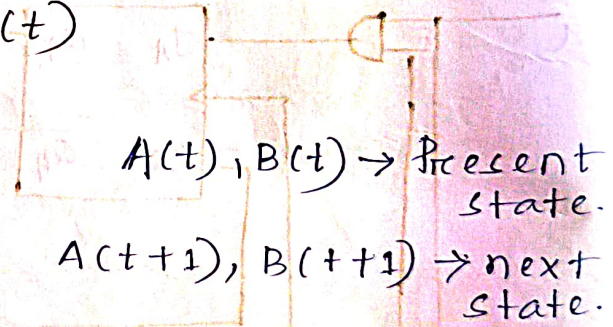 (t)
A(t), B(t) → Present
state.
A(t+1), B(t+1) → next
state.